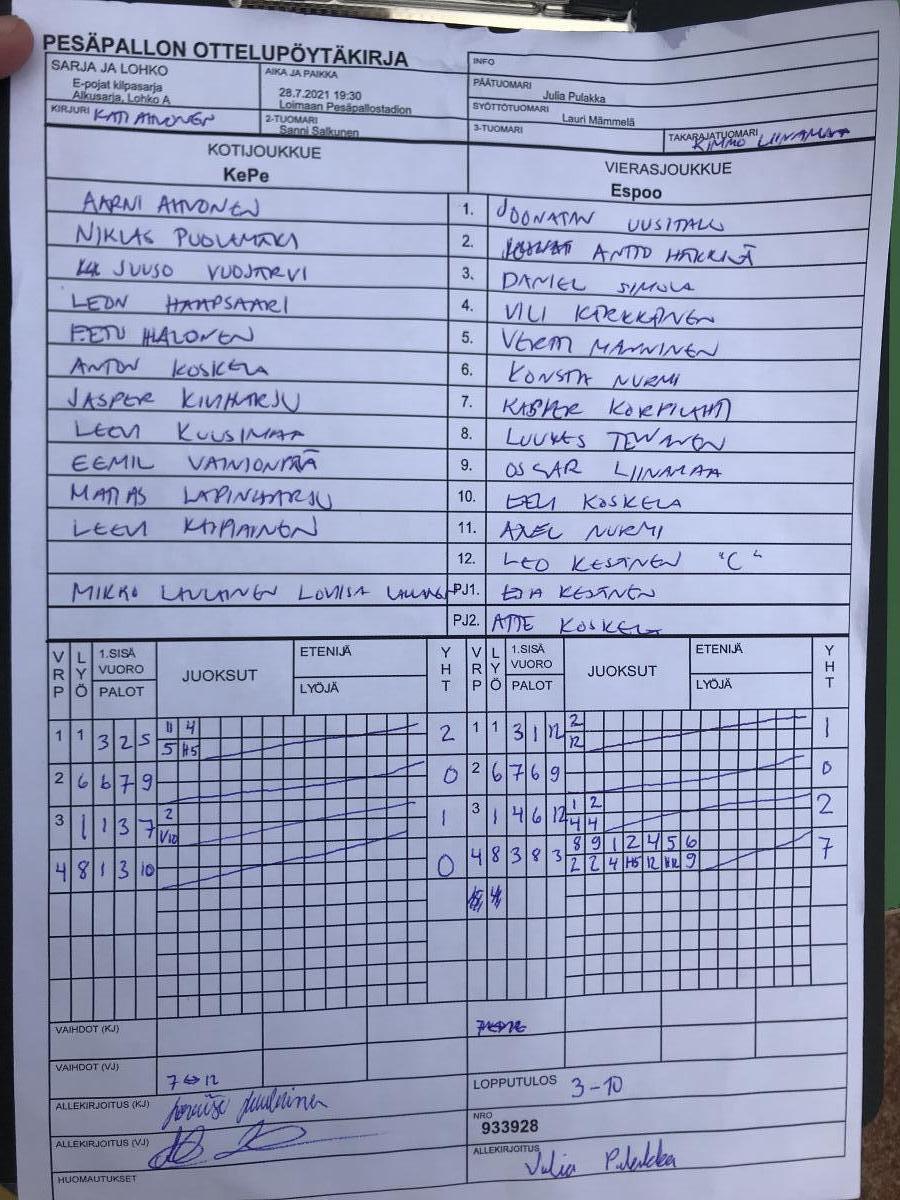 PESÄPALLON OTTELUPÖYTÄKIRJA
SARJA JA LOHKO
E-pojat kilpasarja
Alkusarja, Lohko A
AIKA JA PAIKKA
28.7.2021 19:30
Loimaan Pesäpallostadion
INFO
PÄÄTUOMARI
Julia Pulakka
SYÖTTÖTUOMARI
Lauri Mämmelä
KIRJURI KATI AHVONEN
2-TUOMARI
Sanni Salkunen
3-TUOMARI
TAKARAJATUOMARI
KIMMO LIINAMAA
KOTIJOUKKUE
KePe
VIERASJOUKKUE
Espoo
AARNI AHVONEN 1. JOONATAN UUSITALO
NIKLAS PUOLAMÄKI 2. ANTTO HÄKKILÄ
JUUSO VUOJÄRVI 3. DANIEL SIMOLA
LEON HAAPSAARI 4. VILI KÄRKKÄINEN
EETU IHALONEN 5. MANNINEN
ANTON KOSKELA 6. KONSTA NURMI
JASPER KIVIHARJU 7. KASPER KORPILAHTI
LEEVI KUUSIMAA 8. LUUKAS
EEMIL VAINIONPÄÄ 9. OSCAR LIINAMAA
MATIAS LAPINHARJU 10. EELI KOSKELA
LEEVI 11. AXEL NURMI
12. LEO KESÄNEN "C"
MIKKO LAULAINEN LOVIISA PJ1. KESÄNEN
PJ2. ATTE KOSKELA
VRP LYÖ 1.SISÄ VUORO PALOT JUOKSUT ETENIJÄ LYÖJÄ YHT VRP LYÖ 1.SISÄ VUORO PALOT JUOKSUT ETENIJÄ LYÖJÄ YHT
1 1 3 2 5 11 4 2 1 1 3 1 12 2 1
5 H5 12
2 6 6 7 9 0 2 6 7 6 9 0
3 1 1 3 7 2 1 3 1 4 6 12 1 2 2
V10 4 4
4 8 1 3 10 0 4 8 3 8 3 8 9 1 2 4 5 6 7
2 2 4 H5 12 9
VAIHDOT (KJ)
VAIHDOT (VJ)
7 ↔ 12
ALLEKIRJOITUS (KJ)
LOPPUTULOS 3-10
ALLEKIRJOITUS (VJ)
NRO
933928
HUOMAUTUKSET
ALLEKIRJOITUS Julia Pulakka